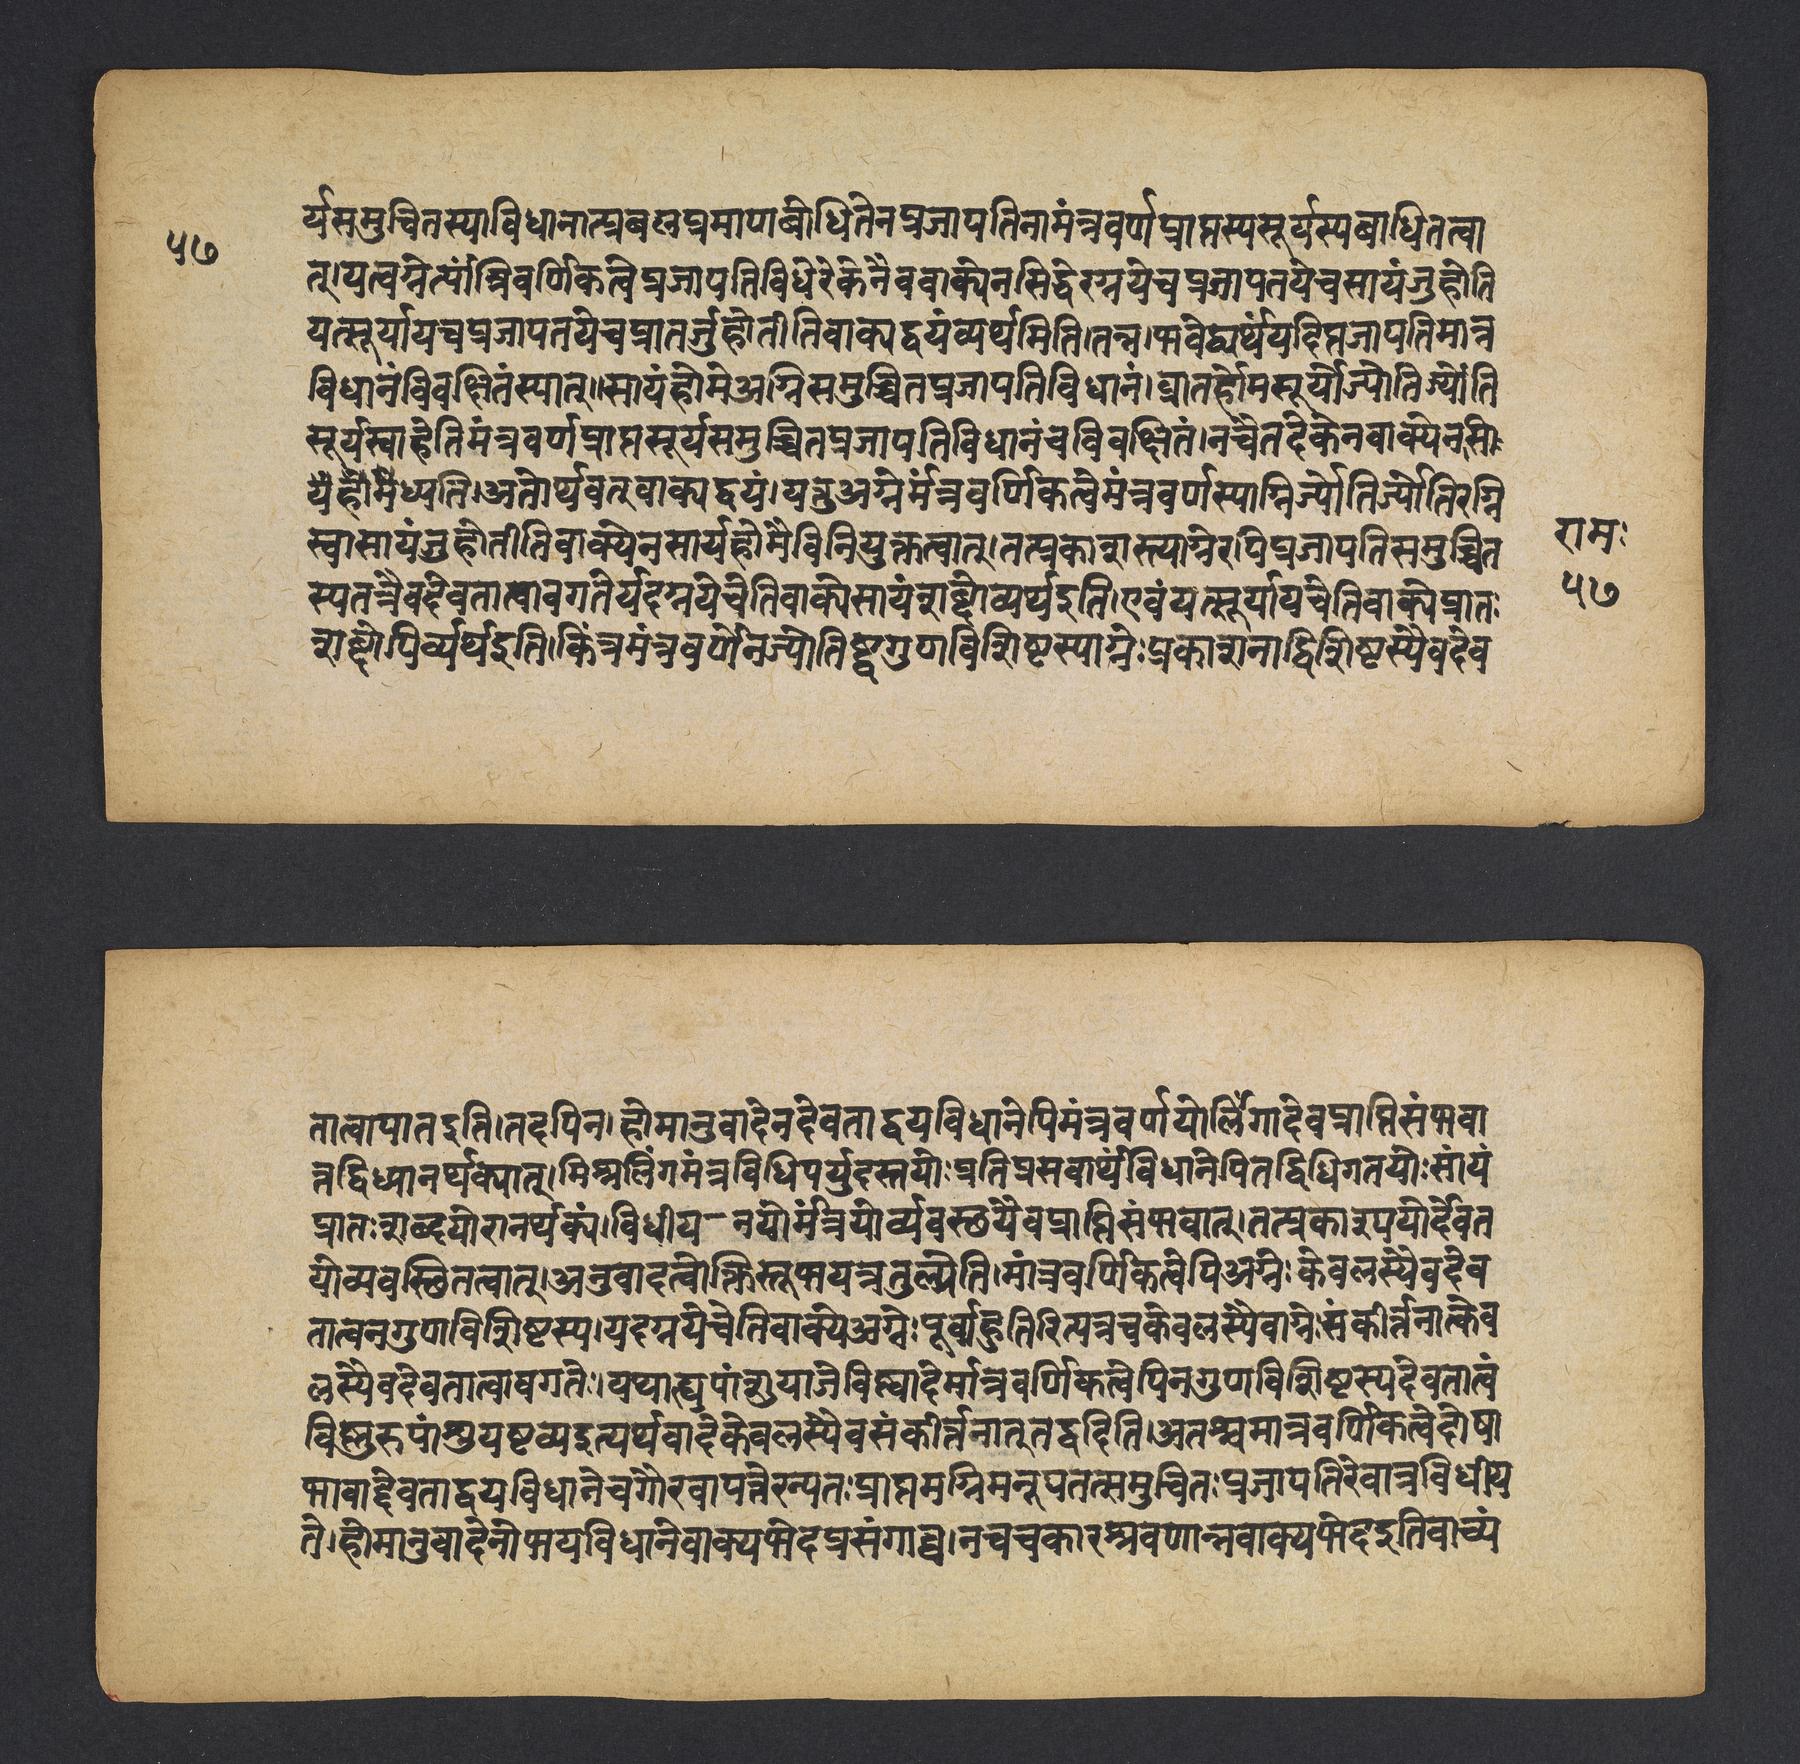 ५७
र्यसमुचितस्याविधानात्प्रबलप्रमाणबोधितेनप्रजापतिनामंत्रवर्णप्राप्तस्यसूर्यस्यबाधितत्वा
त्।यत्वग्नेर्त्यांत्रिवर्णिकत्वेप्रजापतिविधेरेकेनैववाक्येनसिद्धेरग्नयेचप्रजापतयेचसायंजुहोति
यत्सूर्यायचप्रजापतयेचप्रातर्जुहोतीतिवाक्यद्वयंव्यर्थमिति।तन्न।भवेद्व्यर्थंयदिप्रजापतिमात्र
विधानंविवक्षितंस्यात्॥सायंहोमेअग्निसमुच्चितप्रजापतिविधानं।प्रातर्होमसूर्योज्योतिर्ज्योति
सूर्यस्वाहेतिमंत्रवर्णप्राप्तसूर्यसमुच्चितप्रजापतिविधानंचविवक्षितं।नचैतदेकेनवाक्येनसी
यंहोमेध्यति।अतोर्थवत्वाक्यद्वयं।यत्तुअग्नेर्मंत्रवर्णिकत्वेमंत्रवर्णस्याग्निर्ज्योतिर्ज्योतिरग्नि
स्वासायंजुहोतीतिवाक्येनसायंहोमेविनियुक्तत्वात्।तत्प्रकाशस्याग्नेरपिप्रजापतिसमुच्चित
स्यतत्रैवदेवतात्वावगतेर्यदग्नयेचेतिवाक्येसायंशब्दोव्यर्थइति।एवंयत्सूर्यायचेतिवाक्येप्रातः
शब्दोपिर्व्यर्थइति।किंत्रमंत्रवर्णेनज्योतिष्ट्वगुणविशिष्टस्याग्नेःप्रकाशनाद्विशिष्टस्यैवदेव
रामः
५७
तात्वापातइति।तदपिन।होमानुवादेनदेवताद्वयविधानेपिमंत्रवर्णयोर्लिंगादेवप्राप्तिसंभवा
त्तद्विध्यानर्थक्यात्।मिश्रलिंगमंत्रविधिपर्युदस्तयोःप्रतिप्रसवार्थंविधानेपितद्विधिगतयोःसांयं
प्रातःशब्दयोरानर्थक्यं।विधीय-नयोर्मंत्रयोर्व्यवस्छयैवप्राप्तिसंभवात्।तत्प्रकाश्पयोर्देवत
योव्यवस्छितत्वात्।अनुवादत्वोक्तिस्तूभयत्रतुल्येति।मांत्रवर्णिकत्वेपिअग्नेःकेवलस्यैवदेव
तात्वनगुणविशिष्टस्य।यदग्नयेचेतिवाक्येअग्नेःपूर्वाहुतिरित्यत्रचकेवलस्यैवाग्नेःसंकीर्त्तनात्केव
लस्यैवदेवतात्वावगतेः।यथात्द्युपांशुयाजेविष्ण्वादेर्मान्त्रवर्णिकत्वेपिनगुणविशिष्टस्यदेवतात्वं
विष्णुरुपांशुयष्टव्यइत्यर्थवादेकेवलस्यैवसंकीर्त्तनात्तद्वदिति।अतश्चमान्त्रवर्णिकत्वेदोषा
भावाद्देवताद्वयविधानेचगौरवापत्तेरन्यतःप्राप्तमग्निमनूपतत्समुचितःप्रजापतिरेवात्रविधीय
ते।होमानुवादेनोभयविधानेवाक्यभेदप्रसंगाच्च।नचचकारश्रवणान्नवाक्यभेदइतिवाच्यं